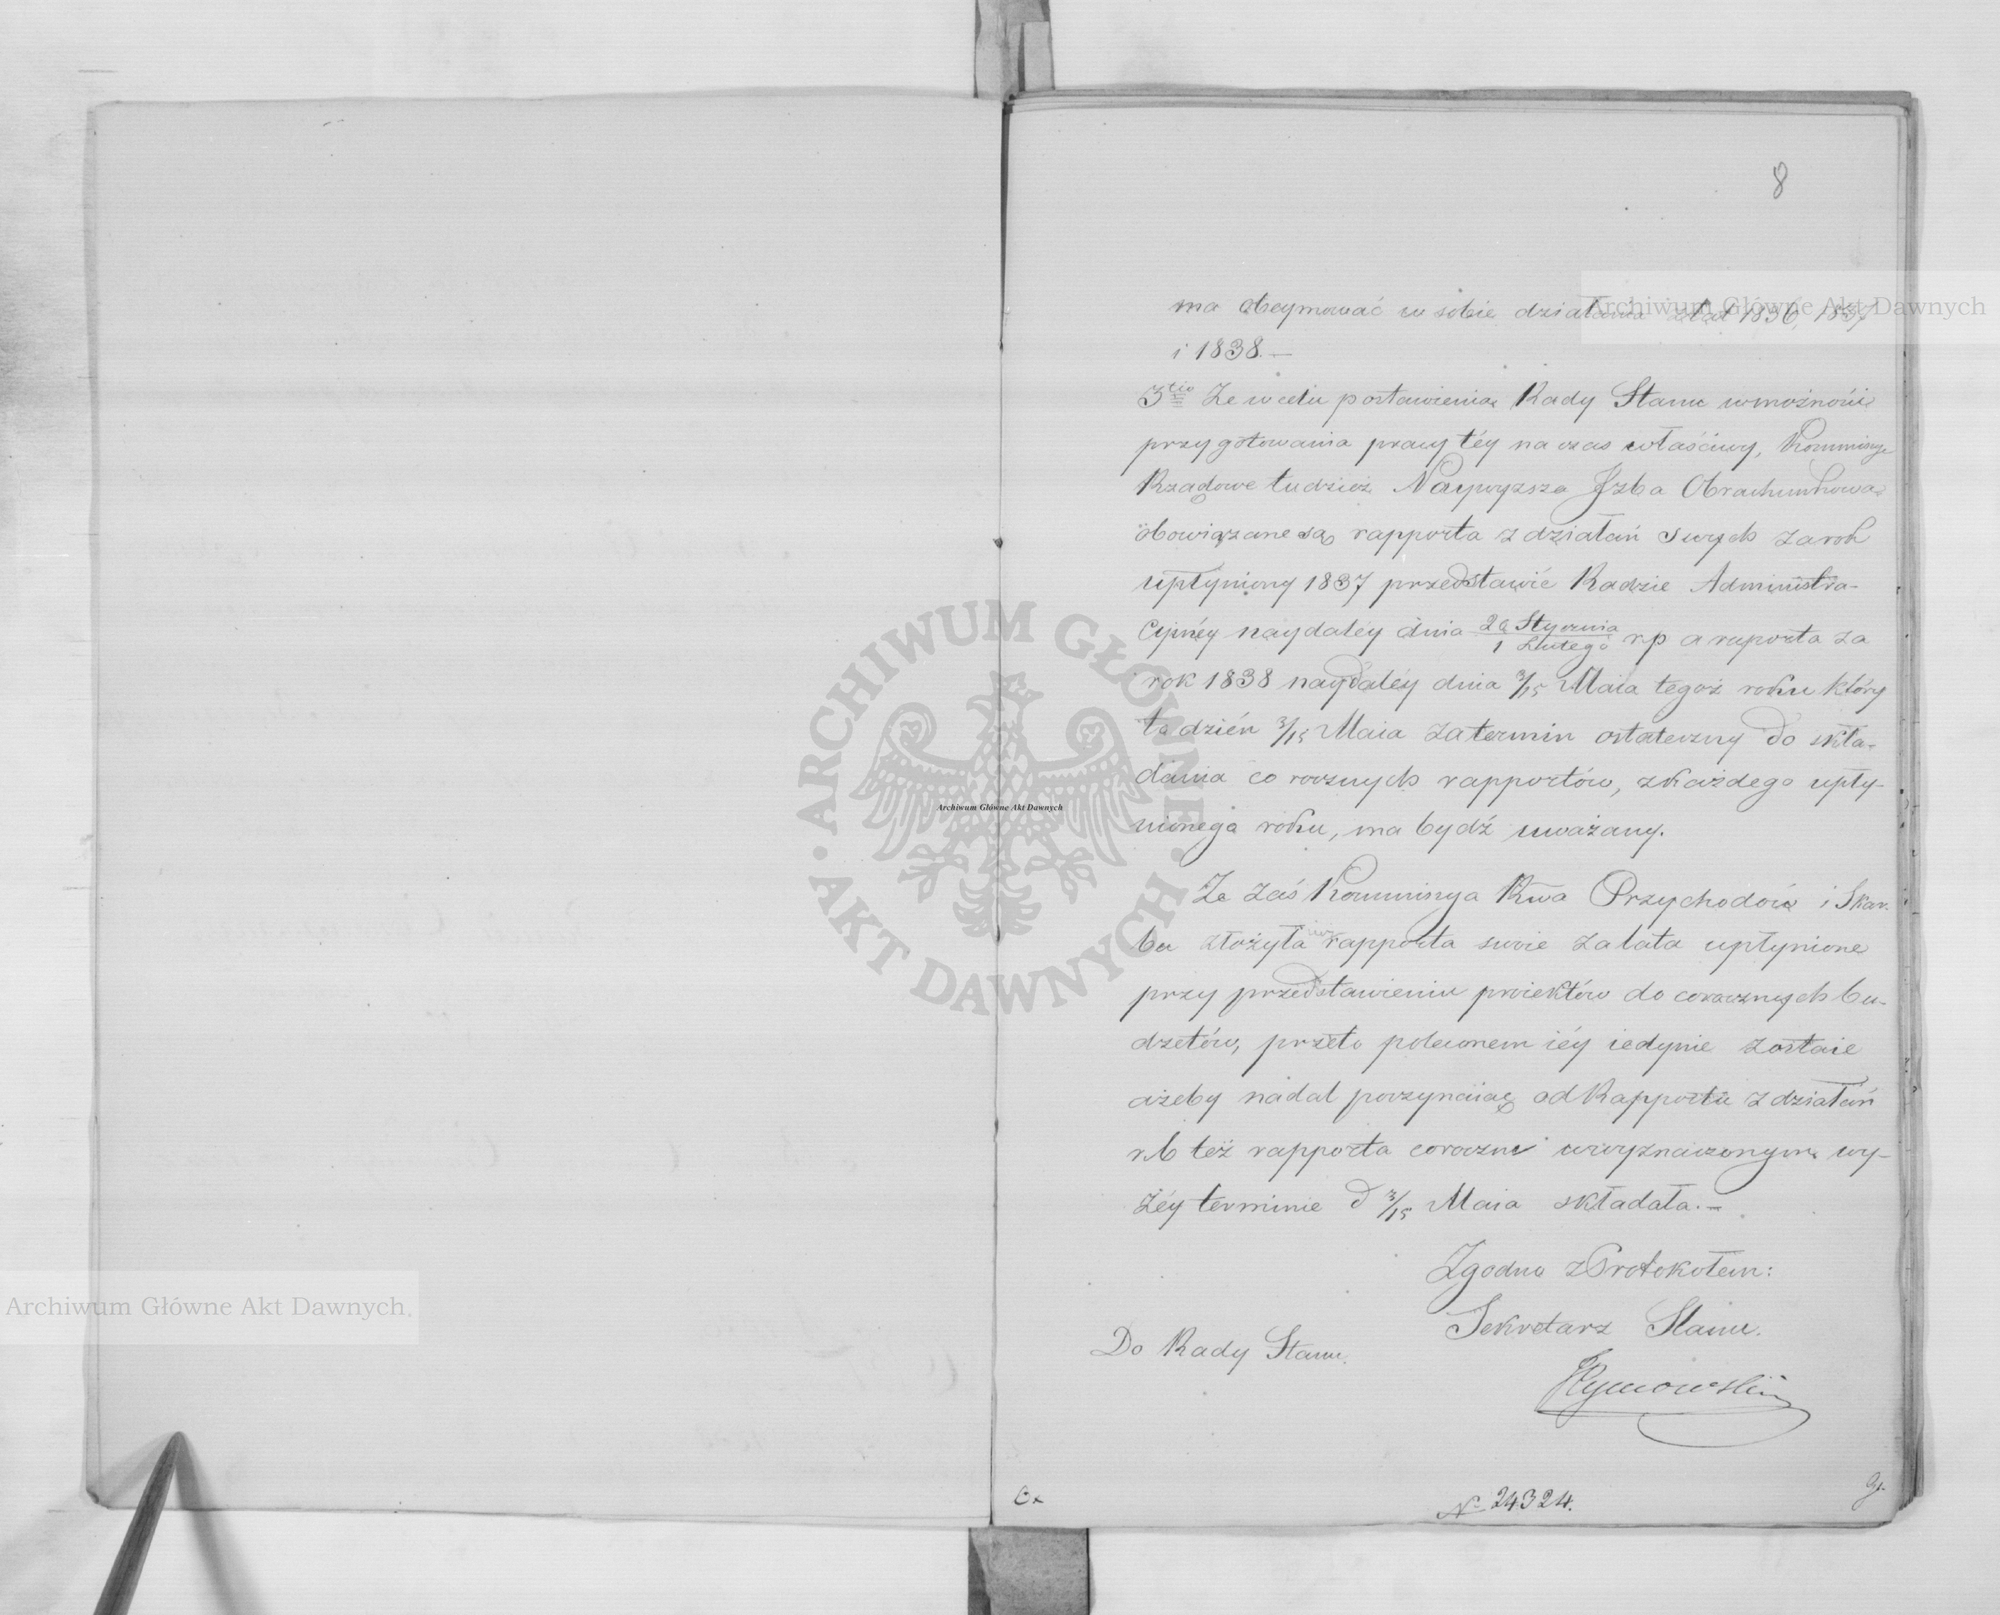 8
ma obeymować w sobie działania z lat 1836, 1837
i 1838.—
3tio Że w celu postawienia Rady Stanu w możności
przygotowania pracy téy na czas właściwy, Kommissye
Rządowe tudzież Naywyższa Jzba Obrachunkowa
obowiązane są rapporta z działań swych za rok
upłyniony 1837 przedstawić Radzie Administra-
cyinéy naydaléy dnia 20 Stycznia / 1 Lutego rp a raporta za
rok 1838 naydaléy dnia 3/15 Maia tegoż roku który
to dzień 3/15 Maia za termin ostateczny do skła-
dania co rocznych rapportów, z każdego upły-
nionego roku, ma bydź uważany.
Że zaś Kommissya Rwa Przychodów i Skar-
bu złożyła iuż rapporta swoie za lata upłynione
przy przedstawieniu proiektów do corocznych bu-
dżetów, przeto poleconem iéy iedynie zostaie
ażeby nadal poczynaiąc od Rapportu z działań
r.b też rapporta corocznie w wyznaczonym wy-
żéy terminie d 3/15 Maia składała.—
Zgodno z Protokołem:
Sekretarz Stanu.
Do Rady Stanu.
JTymowski
№ 24324.
Archiwum Główne Akt Dawnych
Archiwum Główne Akt Dawnych
Archiwum Główne Akt Dawnych
ARCHIWUM GŁÓWNE AKT DAWNYCH